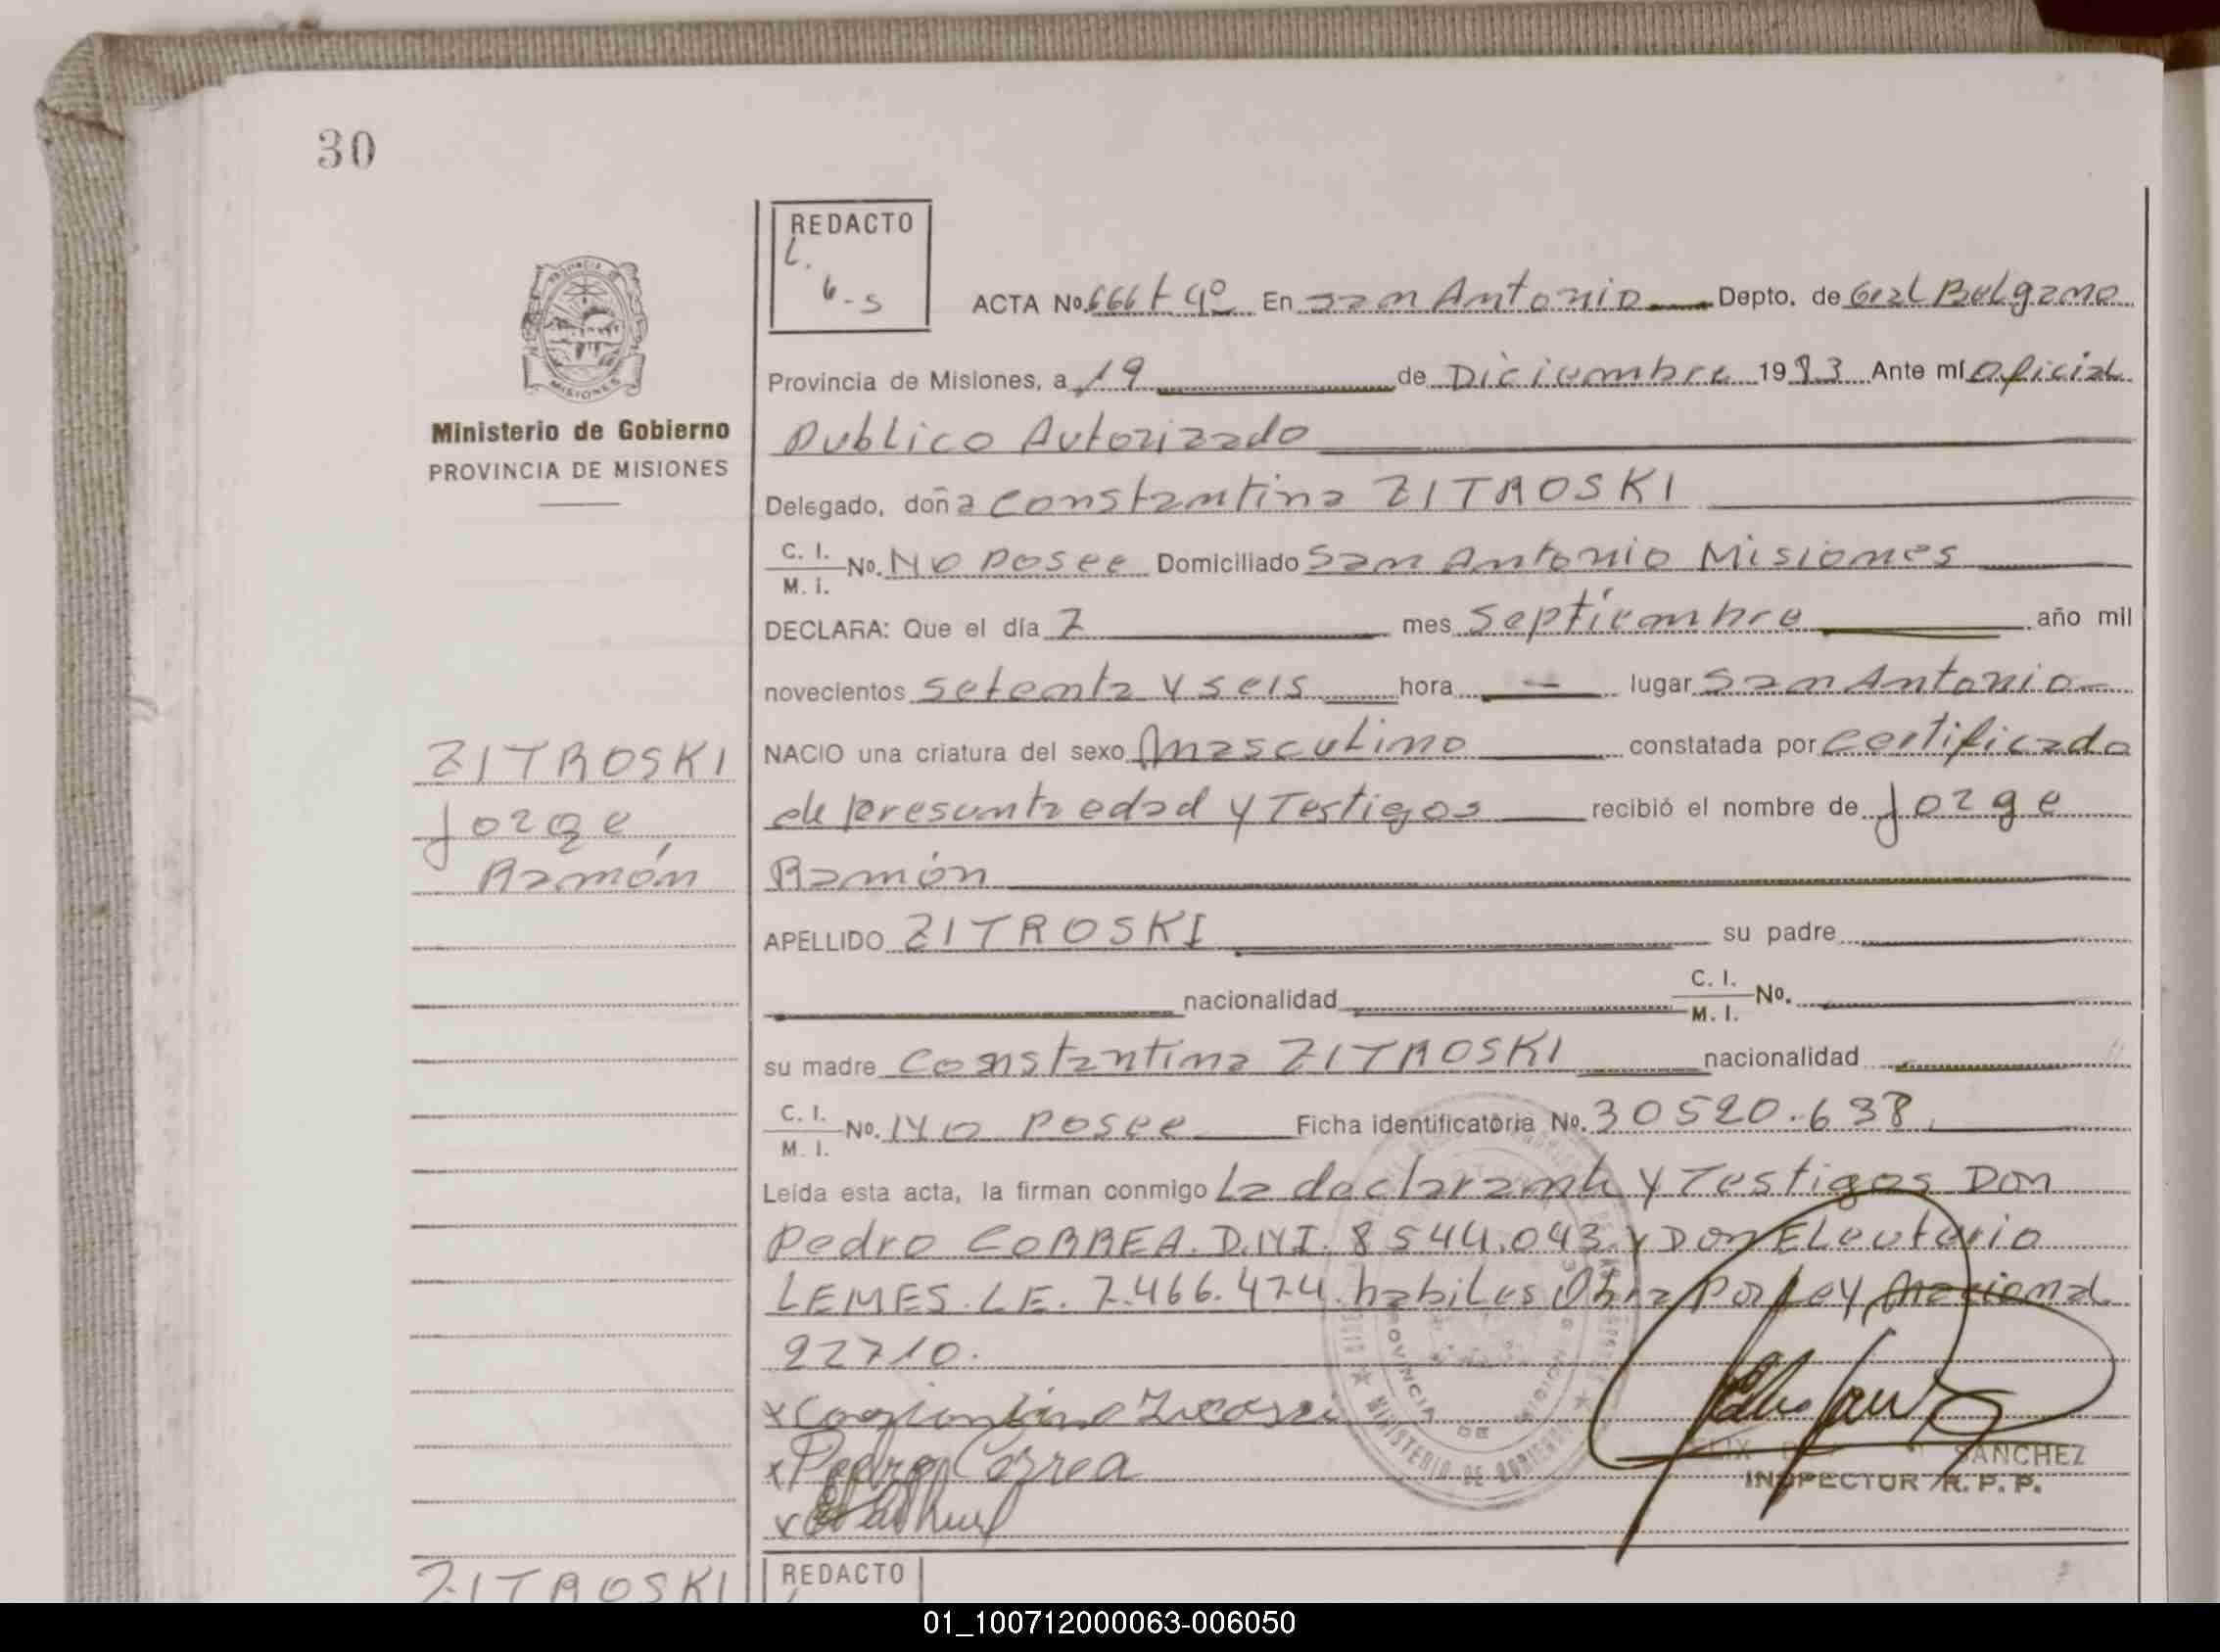 30
REDACTO
L.
6-5
ACTA No. 666 t 4º En San Antonio Depto. de Gral Belgrano
Provincia de Misiones, a 19 de Diciembre 1983 Ante mí Oficial
Publico Autorizado
Ministerio de Gobierno
PROVINCIA DE MISIONES
Delegado, doña Constantina ZITROSKI
C. I.
M. I. No. No posee Domiciliado San Antonio Misiones
DECLARA: Que el día 7 mes Septiembre año mil
novecientos setenta y seis hora — lugar San Antonio
ZITROSKI
Jorge
Ramón
NACIO una criatura del sexo masculino constatada por certificado
de presunta edad y Testigos recibió el nombre de Jorge
Ramón
APELLIDO ZITROSKI su padre
nacionalidad C. I.
M. I. No.
su madre Constantina ZITROSKI nacionalidad
C. I.
M. I. No. No posee Ficha identificatoria No. 30520.638
Leída esta acta, la firman conmigo La declarante y Testigos Don
Pedro CORREA. D.N.I. 8544.043 y Don ELeuterio
LEMES. LE. 7.466.474. habiles por Ley nacional
22710.
x
x Pedro Correa
x
SANCHEZ
INSPECTOR R. P. P.
PROVINCIA DE MISIONES
MINISTERIO DE GOBIERNO
ZITROSKI
REDACTO
01_100712000063-006050